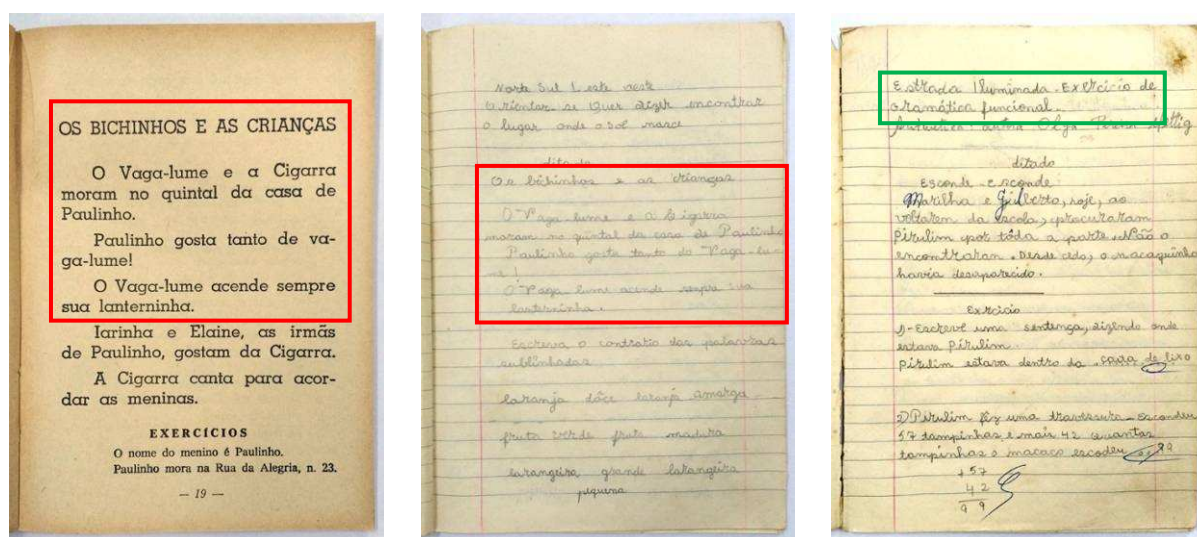 OS BICHINHOS E AS CRIANÇAS
O Vaga-lume e a Cigarra
moram no quintal da casa de
Paulinho.
Paulinho gosta tanto de va-
ga-lume!
O Vaga-lume acende sempre
sua lanterninha.
Iarinha e Elaine, as irmãs
de Paulinho, gostam da Cigarra.
A Cigarra canta para acor-
dar as meninas.
EXERCÍCIOS
O nome do menino é Paulinho.
Paulinho mora na Rua da Alegria, n. 23.
— 19 —
Norte Sul Leste oeste
Orientar se Quer dizer encontrar
o lugar onde o sol nasce
ditado
Os bichinhos e as crianças
O Vaga-lume e a Cigarra
moram no quintal da casa de Paulinho
Paulinho gosta tanto do Vaga-lu-
me!
O Vaga-lume acende sempre sua
lanterninha.
Escreva o contrato das palavras
sublinhadas
laranja dôce laranja amarga
fruta verde fruta madura
larangeira grande larangeira
pequena
Estrada Iluminada. Exercício de
Gramática funcional.
Olga
ditado
Esconde-esconde
Marilha e Gilberto, hoje, ao
voltarem da escola, procuraram
Pirulim por tôda a parte. Não o
encontraram. Desde cedo, o macaquinho
havia desaparecido.
Exercício
1-Escreve uma sentença, dizendo onde
estava Pirulim.
Pirulim estava dentro da caixa de lixo
2) Pirulim fêz uma travessura. Escondeu
57 tampinhas e mais 42 quantas
tampinhas o macaco escodeu 99
+57
42
99